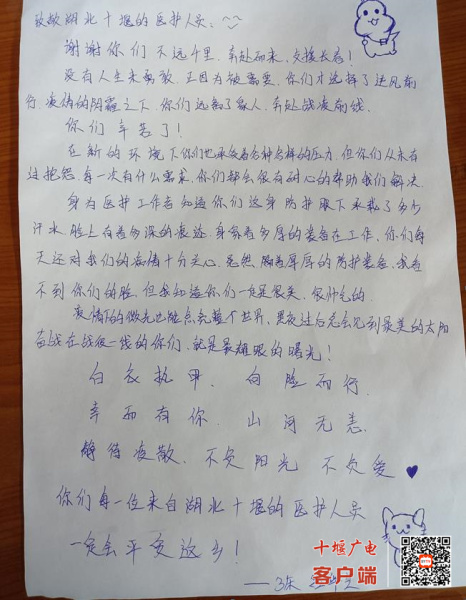 致敬湖北十堰的医护人员:
谢谢你们不远千里,奔赴而来,支援长春!
没有人生来勇敢,正因为被需要,你们才选择了逆风前
行,疫情的阴霾之下,你们远离了家人,奔赴战疫前线.
你们辛苦了!
在新的环境下你们也承受着各种各样的压力,但你们从未有
过抱怨,每一次有什么需求,你们都会很有耐心的帮助我们解决.
身为医护工作者知道你们这身防护服下承载了多少
汗水,脸上有着多深的痕迹,身穿着多厚的装备在工作,你们每
天还对我们的病情十分关心,虽然隔着厚厚的防护装备,我看
不到你们的脸,但我知道你们一定是很美,很帅气的.
疫情下的微光也能点亮整个世界,黑夜过后总会见到最美的太阳
奋战在战疫一线的你们,就是最耀眼的曙光!
白衣执甲,向险而行,
幸而有你,山河无恙.
静待疫散,不负阳光,不负爱♥
你们每一位来自湖北十堰的医护人员
一定会平安返乡!
——3床
十堰广电
客户端